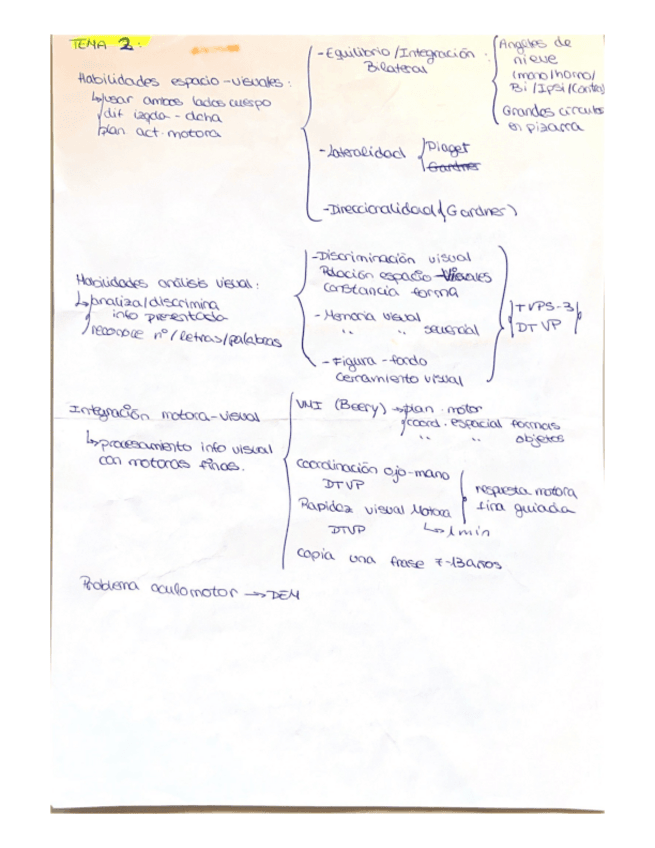 TEMA 2:
Habilidades espacio-visuales:
↳ usar ambos lados cuerpo
dif izqda - dcha
plan act. motora
- Equilibrio / Integración
Bilateral
Angeles de
nieve
(mono/homo/
Bi / Ipsi / Contra)
Grandes circulos
en pizarra
- Lateralidad
Piaget
Gardner
- Direccionalidad (Gardner)
Habilidades análisis visual:
↳ analiza/discrimina
info presentada
reconoce nº/letras/palabras
- Discriminación visual
Relación espacio - Visuales
Constancia forma
- Memoria visual
" " secuencial
- Figura - fondo
Cerramiento visual
TVPS-3
DTVP
Integración motora-visual
↳ procesamiento info visual
con motoras finas.
VMI (Beery) → plan motor
coord. espacial formas
" " objetos
Coordinación ojo-mano
DTVP
Rapidez visual Motora
DTVP ↳ 1 min
respuesta motora
fina guiada
Copia una frase 7-13 años
Problema oculomotor → DEM